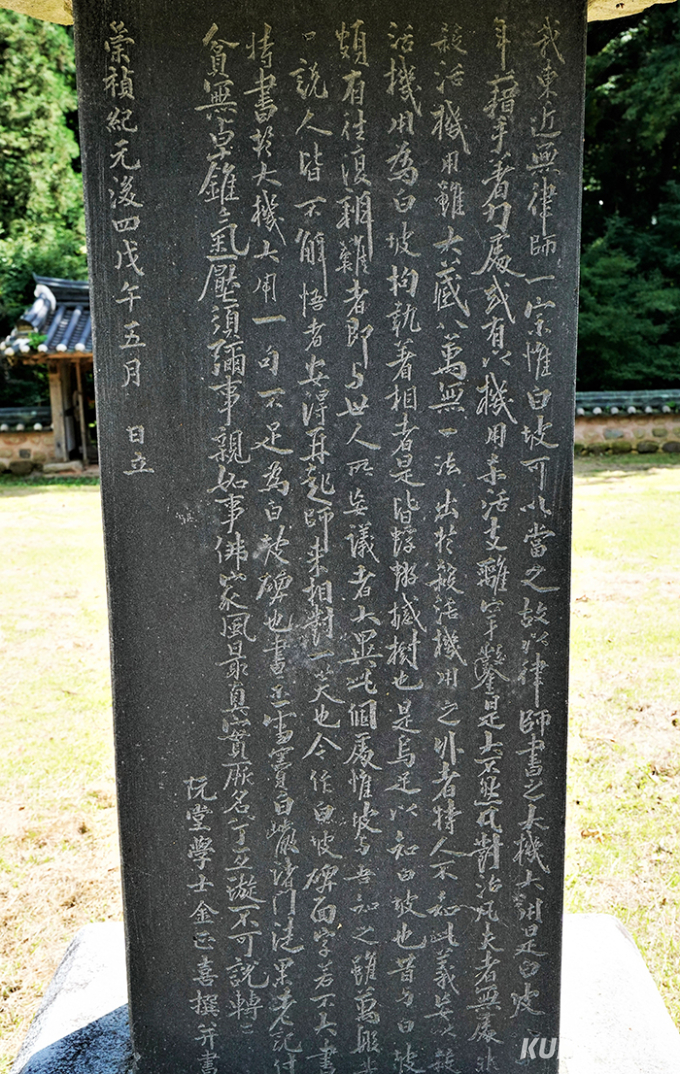 我東近無律師一宗惟白坡可以當之故以律師書之大機大用是白坡
年藉手著力處或有以機用殺活支離穿鑿是大不然凡對治凡夫者無處非
殺活機用雖大藏八萬無一法出於殺活機用之外者特人不知此義妄以殺
活機用為白坡拘執著相者是皆蜉蝣撼樹也是烏足以知白坡也昔与白坡
頗有往復辨難者即与世人所妄議者大異此個處惟坡与吾知之雖萬般苦
口說人皆不解悟者安得再起師來相對一笑也今作白坡碑面字若不大書
特書於大機大用一句不足為白坡碑也書示雪竇白巖諸門徒果老記付
貧無卓錐氣壓須彌事親如事佛家風最真實厥名兮亘璇不可說轉轉
阮堂學士金正喜撰并書
崇禎紀元後四戊午五月 日立